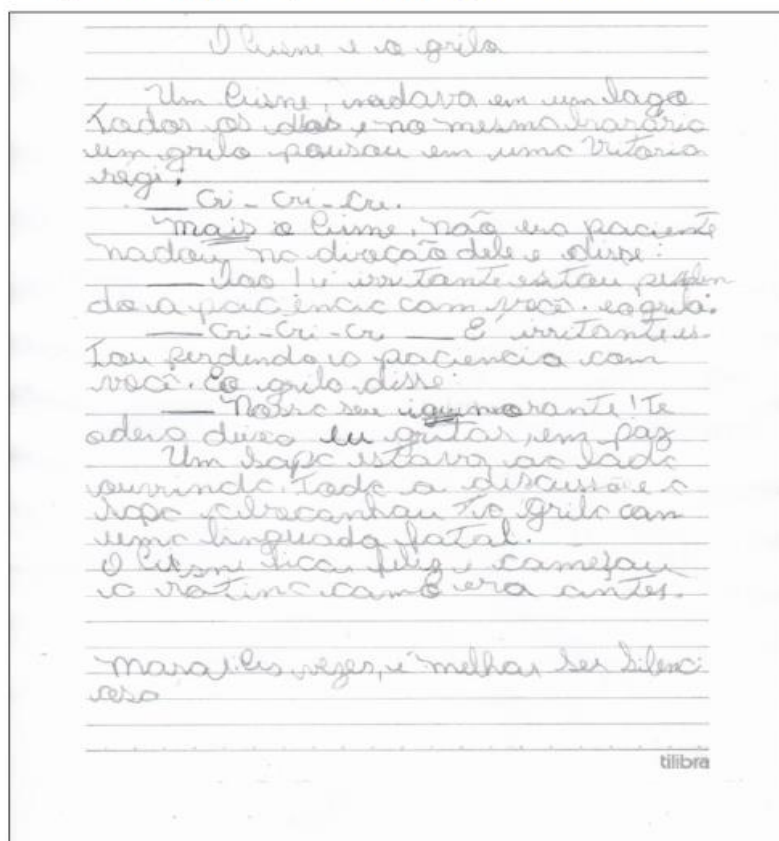 O Cisne e o grilo
Um Cisne, nadava em um lago
todos os dias e no mesmo horário
um grilo pousou em uma Vitoria
regi.
— Cri - Cri - Cri.
Mais o Cisne, não era paciente
nadou, na direção dele e disse:
— Isso! é irritante estou perden
do a paciência com você. e o grilo:
— Cri - Cri - Cri — É irritante es
tou perdendo a paciencia com
você. E o grilo disse:
— Nossa seu ignorante! te
odeio deixa eu gritar, em paz
Um sapo estava ao lado
ouvindo. toda a discussão e o
sapo abocanhou o Grilo com
uma linguada fatal.
O Cisne fica feliz e começou
a rotina como era antes.
Moral: As vezes, é melhor ser Silenci
oso
tilibra